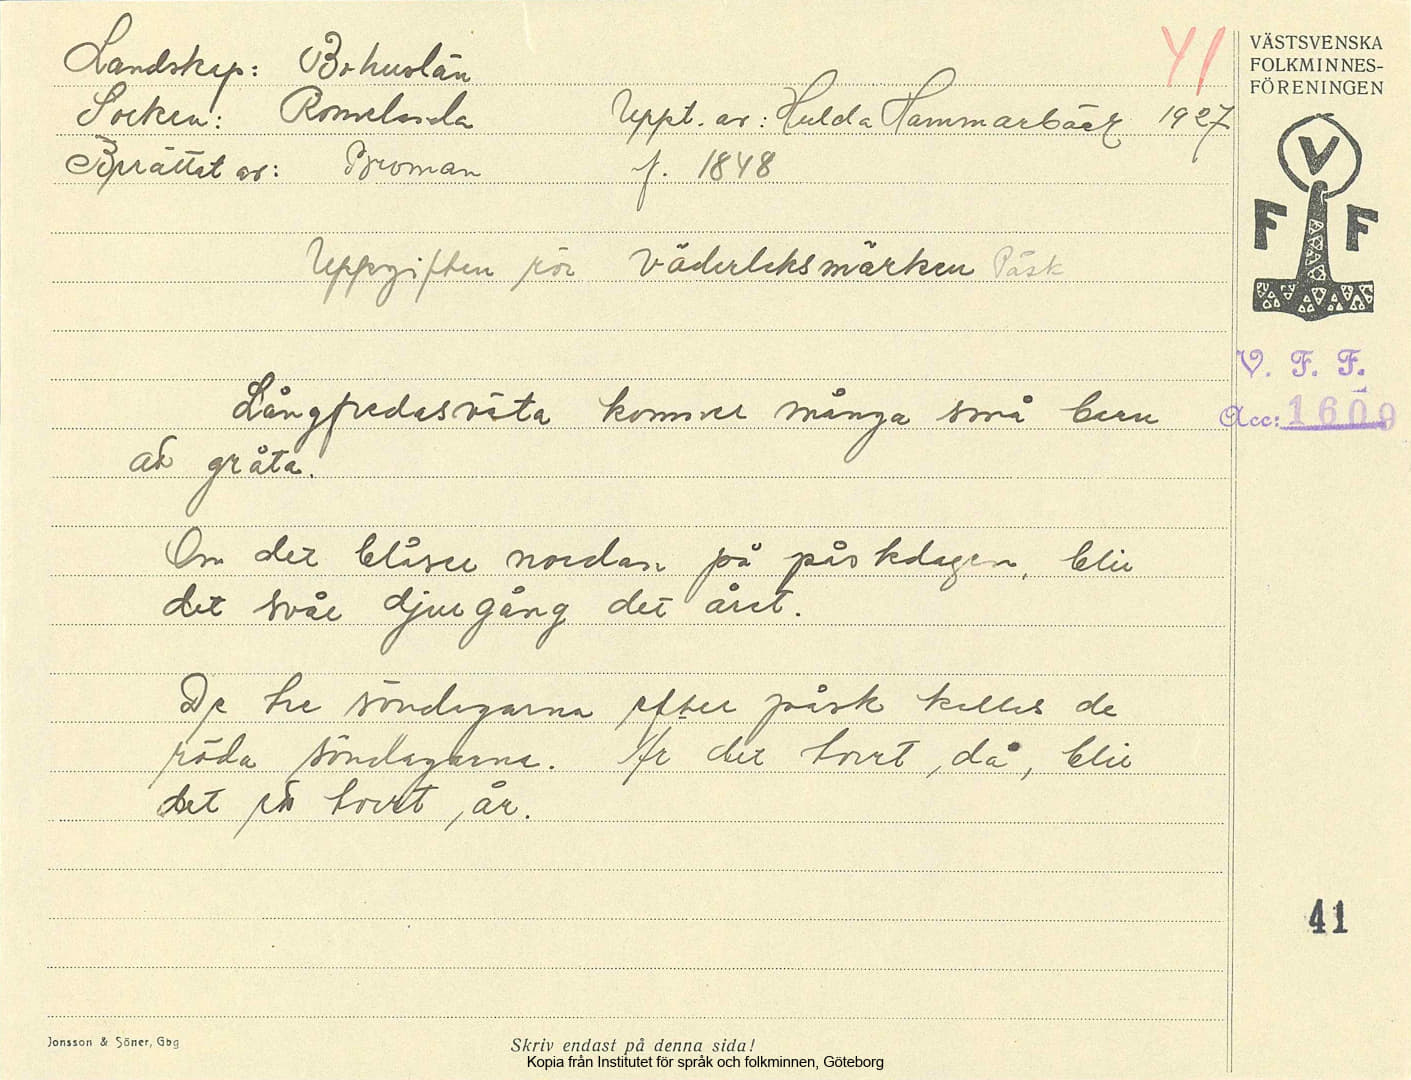 Landskap: Bohuslän
Socken: Romelanda Uppt. av: Hulda Hammarbäck 1927
Berättat av: Broman f. 1848
Uppgiften rör väderleksmärken Påsk
Långfredasväta kommer många små barn
att gråta.
Om det blåser nordan på påskdagen, blir
det svår djurgång det året.
De tre söndagarna efter påsk kallas de
röda söndagarna. Är det torrt, då, blir
det ett torrt, år.
41
VÄSTSVENSKA
FOLKMINNES-
FÖRENINGEN
V
F F
V. F. F.
Acc: 1609
41
Jonsson & Söner, Gbg
Skriv endast på denna sida!
Kopia från Institutet för språk och folkminnen, Göteborg